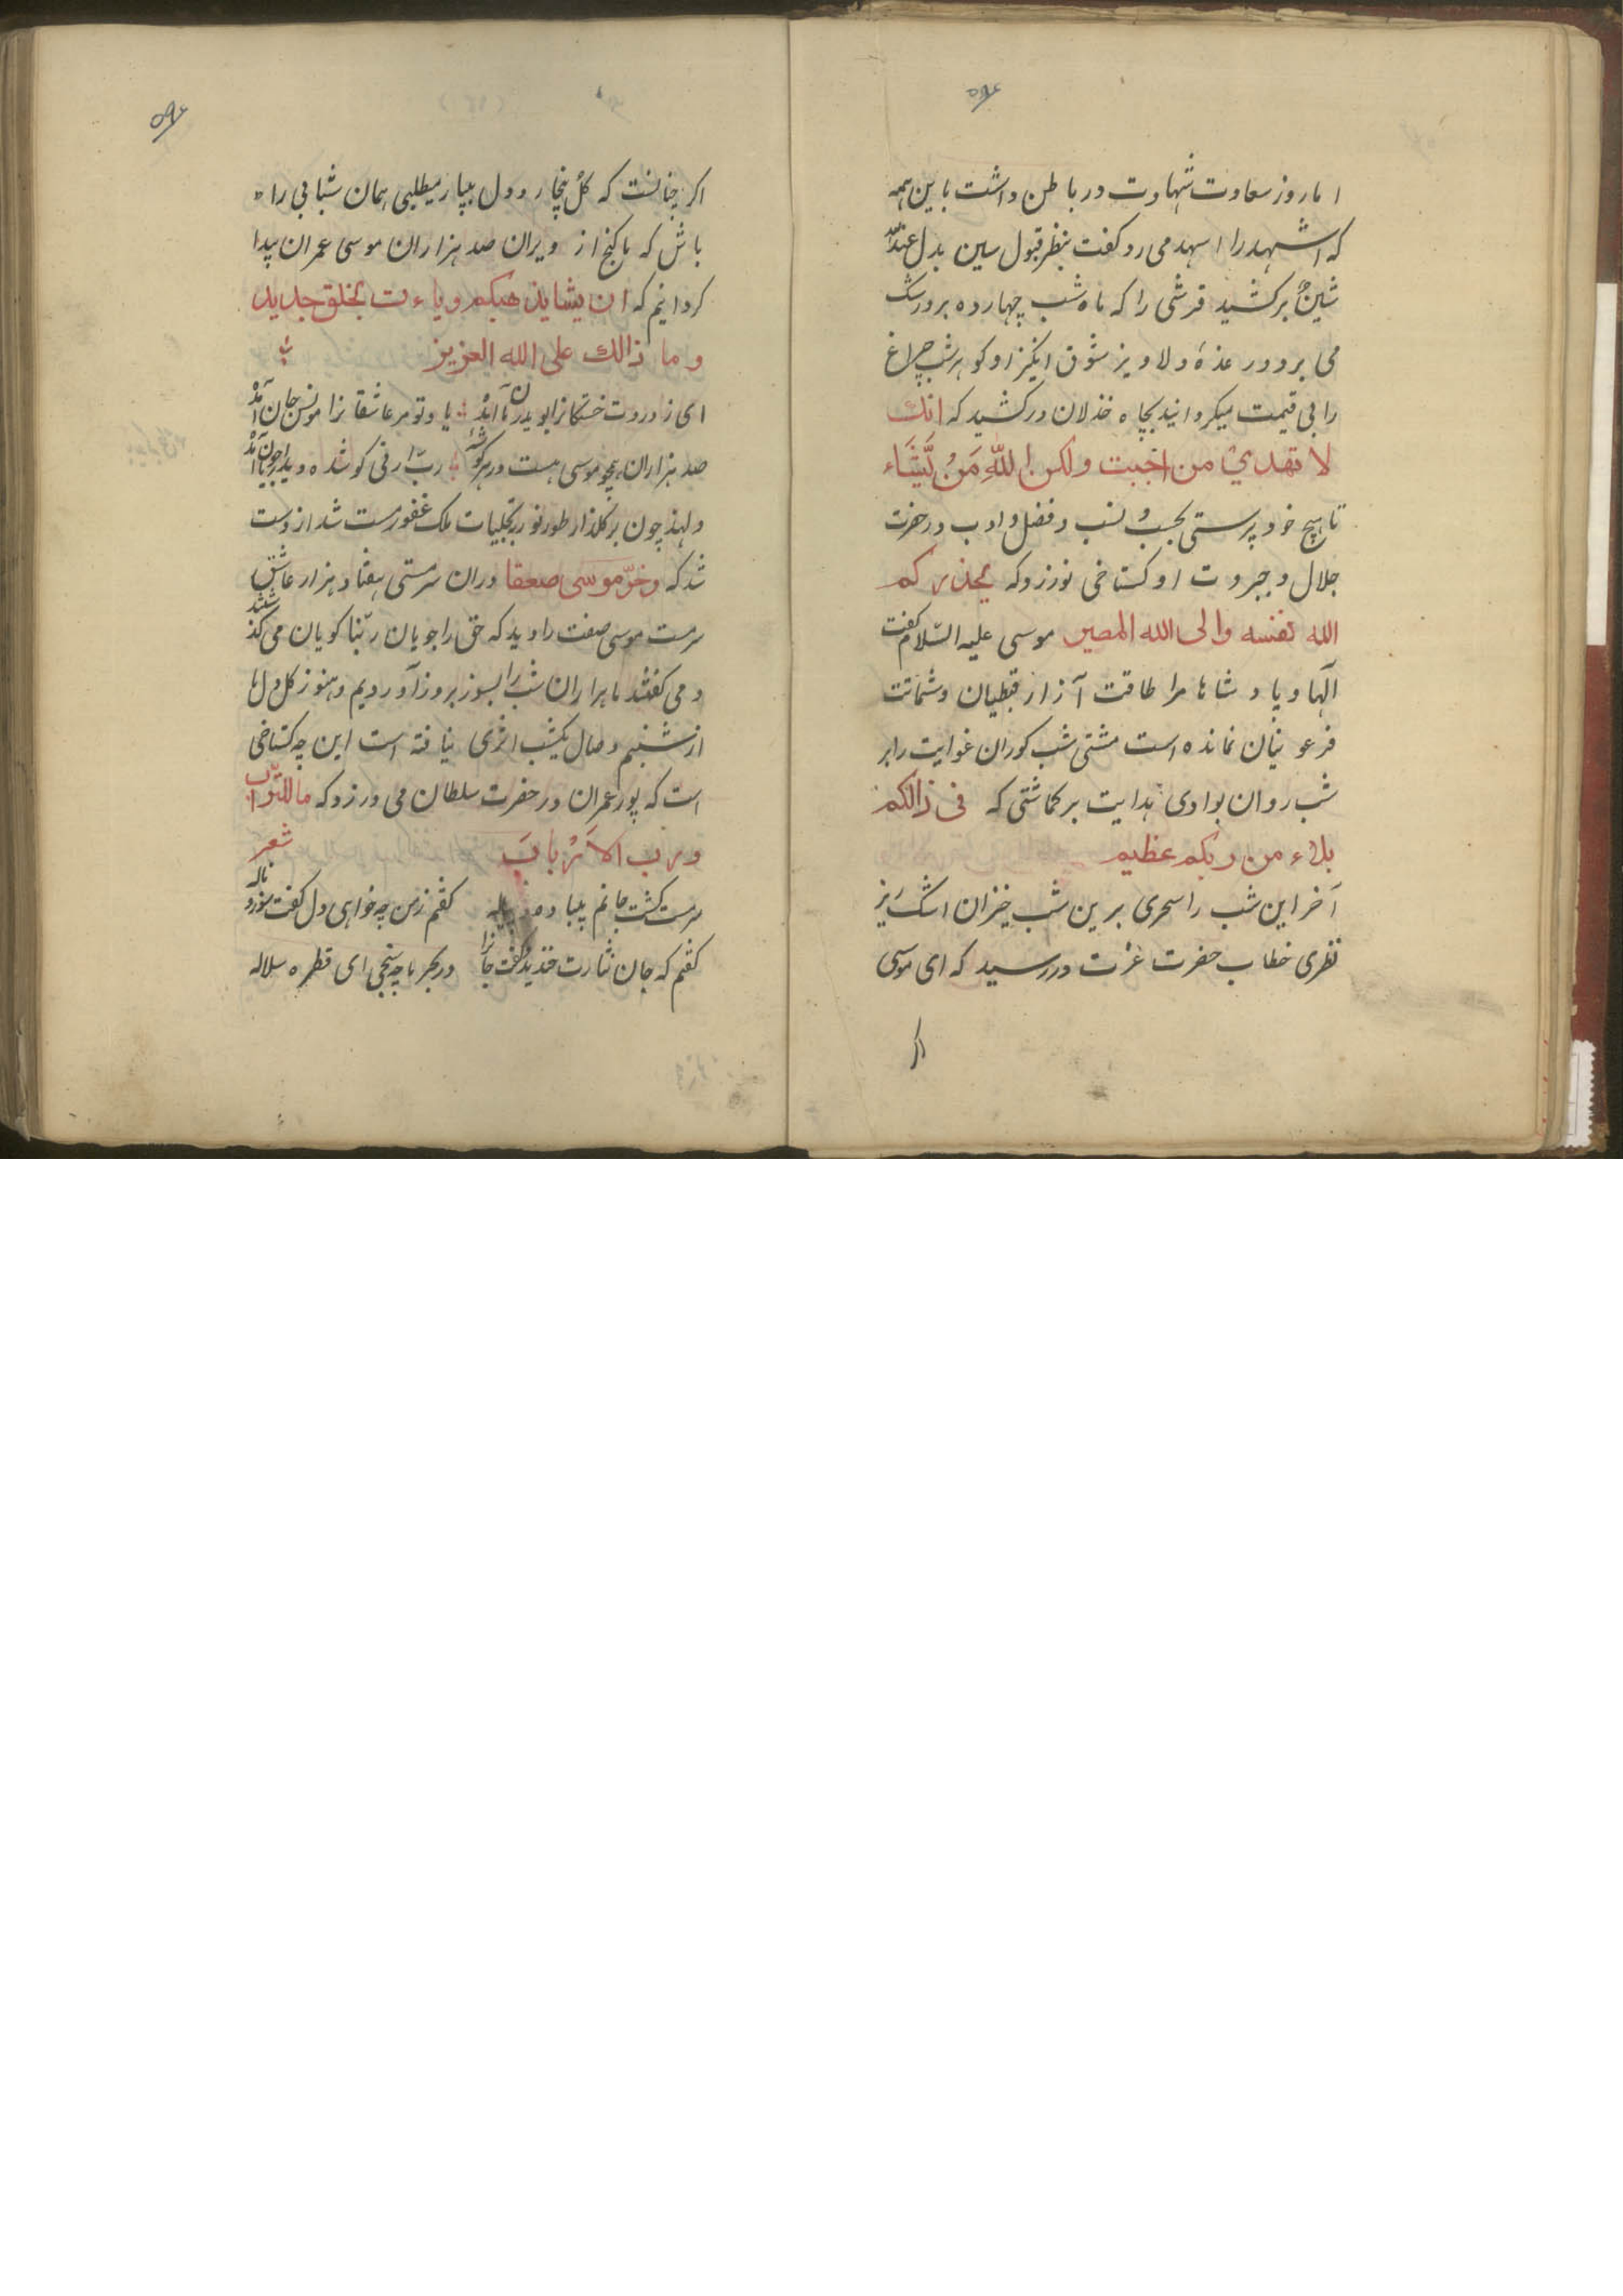 اما روز سعادت شهادت در باطن داشت با این همه
که اشهد را اسهد می زد گفت بنظر قبول سین بدل عند الله
شین بر کشید قرشی را که ماه شب چهارده بر ورشک
می برد ور عذهٔ دلاویز شوق انگیز او کوهر شب چراغ
را بی قیمت میکردانید بچاه خذلان در کشید که انک
لا تهدی من احببت ولکن الله مَن یَّشَاء
تا هیچ خود پرستی بحسب و نسب و فضل و ادب در حضرت
جلال و جبروت او کستاخی نورزد که یحذرکم
الله نفسه والی الله المصیر موسی علیه السّلام کفت
آلها و پادشاها مرا طاقت آزار قبطیان و شماتت
فرعونیان نمانده است مشتی شب کوران غوایت را بر
شب روان بوادی هدایت بر کماشتی که فی ذالکم
بلاء من ربکم عظیم
آخر این شب را سحری برین شب خیزان اشک ریز
نظری خطاب حضرت عزّت در رسید که ای موسی
اکر
اکر چنانست که کل بیخار و دل بیبار میطلبی همان شبانی را
باش که ما کنج از ویران صد هزاران موسی عمران پیدا
کردانیم که ان یشا یذهبکم ویاءت بخلق جدید
و ما ذالک علی الله العزیز
ای ز دردت خستکانرا بوی درمان آمدْ یاد تو مر عاشقانرا مونس جان آمدْ
صد هزاران همچو موسی هست در هر کوشهٔ ربّ ارنی کو شده دیدار جویان آمدْ
ولهذ چون بر کلذار طور نور تجلیات ملک غفور مست شد از دست
شد که وخرّ موسی صعقا دران سرمستی هفتاد هزار عاشق
سرمست موسی صفت را دید که حق را جویان ربّنا کویان می کذشتند
و می کفتند ما هزاران شب را بسوز بروز آوردیم و هنوز کل دل ما
از شبنم وصال یکشب اثری نیافته است این چه کستاخی
است که پور عمران در حضرت سلطان می ورزد که ما للتّراب
ورب الاَرْبابَ شعر
سرمست کشت جانم پیباده و پیاله کفتم زمن چه خواهی دل کفت سوز و ناله
کفتم که جان نثارت خندید کفت جانرا در بحر ما چه سنجی ای قطره سلاله